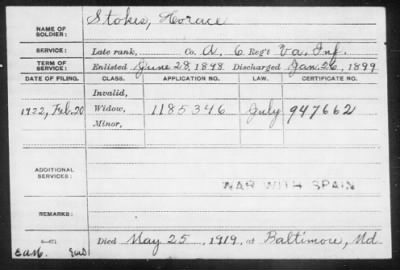 NAME OF SOLDIER: Stokes, Horace
SERVICE: Late rank, Co. A, 6 Reg't Va. Inf.
TERM OF SERVICE: Enlisted June 28, 1898 Discharged Jan. 26, 1899
DATE OF FILING. CLASS. APPLICATION NO. LAW. CERTIFICATE NO.
Invalid,
1922, Feb. 20 Widow, 1185346 July 947662
Minor,
ADDITIONAL SERVICES:
WAR WITH SPAIN
REMARKS:
Died May 25, 1919, at Baltimore, Md.